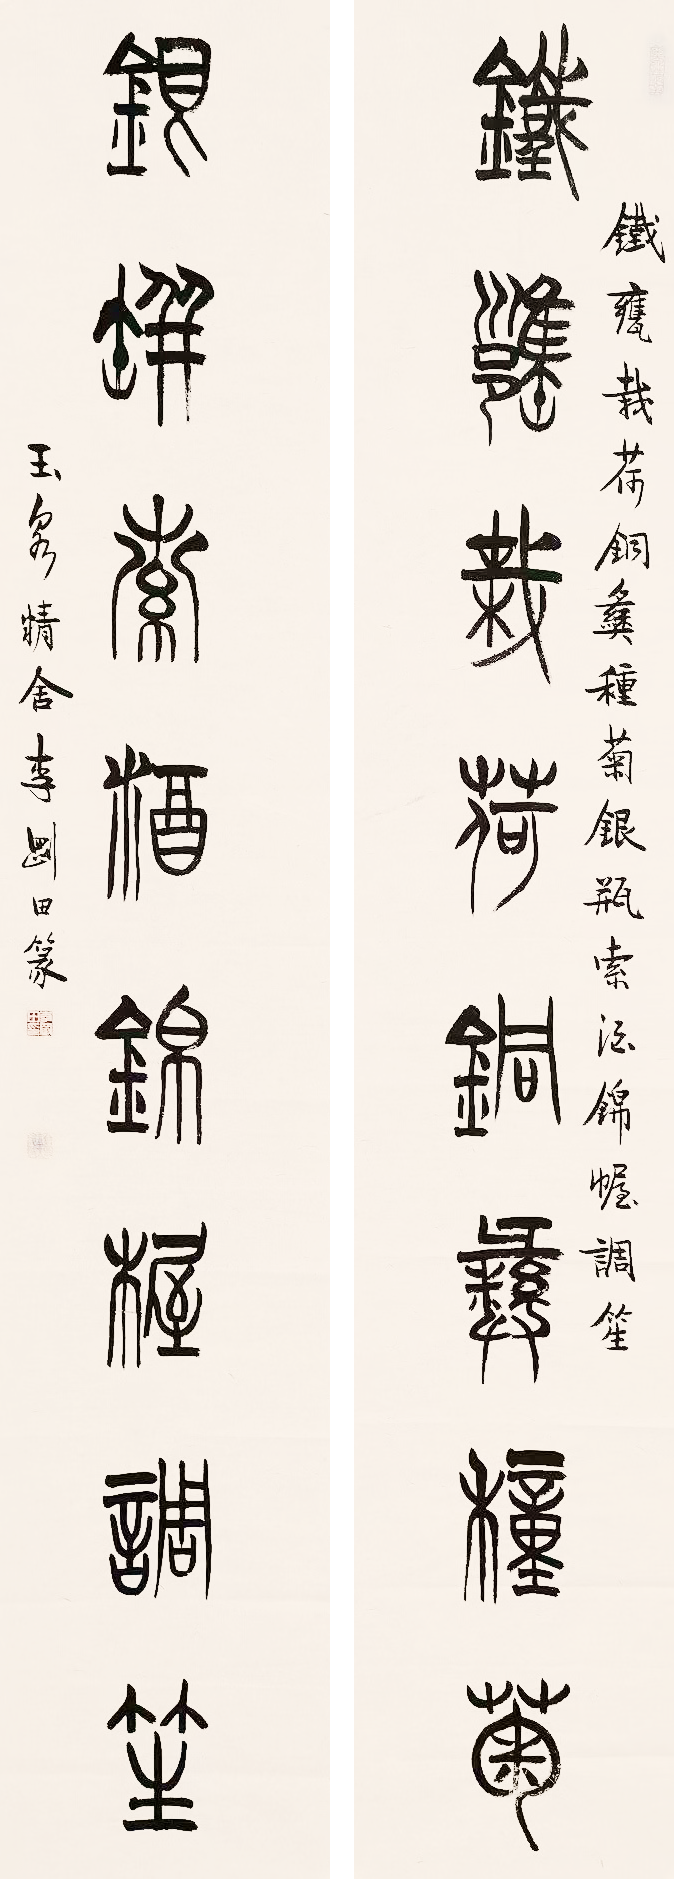 鐵甕栽荷銅彝種菊
鐵甕栽荷銅彝種菊銀瓶索酒錦幄調笙
銀缾索酒錦幄調笙
玉泉精舍李剛田篆